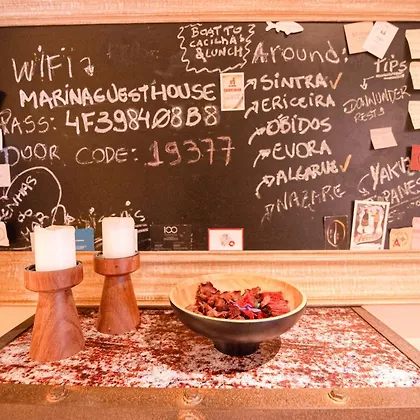 WiFi
MARINAGUESTHOUSE
PASS: 4F398408B8
DOOR CODE: 19377
BOAT TO
CACILHAS
& LUNCH
Around:
SINTRA
ERICEIRA
ÓBIDOS
EVORA
ALGARVE
NAZARE
TIPS
DOWNUNDER
REST.
YAKU
100